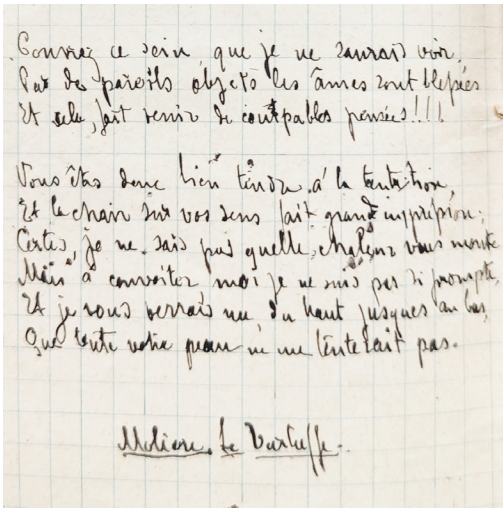 Couvrez ce sein, que je ne saurais voir,
Par de pareils objets les âmes sont blessées
Et cela fait venir de coupables pensées!!!
Vous êtes donc bien tendre à la tentation,
Et la chair sur vos sens fait grande impression;
Certes, je ne sais pas quelle chaleur vous monte
Mais à convoiter moi je ne suis pas si prompte,
Et je vous verrais nu du haut jusques au bas,
Que toute votre peau ne me tenterait pas.
Molière. Le Tartuffe.